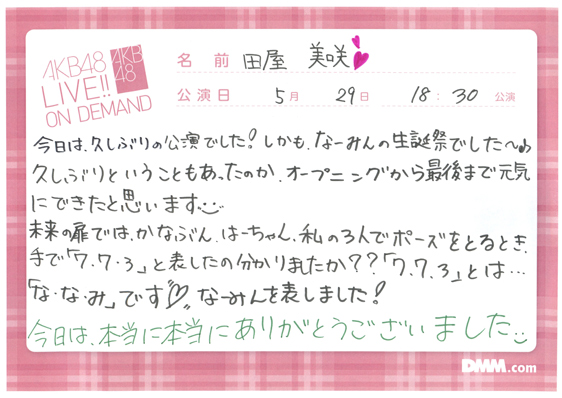 AKB48
LIVE!!
ON DEMAND
AKB
48
名前 田屋 美咲
公演日 5月 29日 18:30 公演
今日は、久しぶりの公演でした!しかも、なーみんの生誕祭でした〜♪
久しぶりということもあったのか、オープニングから最後まで元気
にできたと思います
未来の扉では、かなぶん、はーちゃん、私の3人でポーズをとるとき、
手で「7.7.3」と表したの分かりましたか??「7.7.3」とは…
「な・な・み」です♡ なーみんを表しました!
今日は、本当に本当にありがとうございました
DMM.com